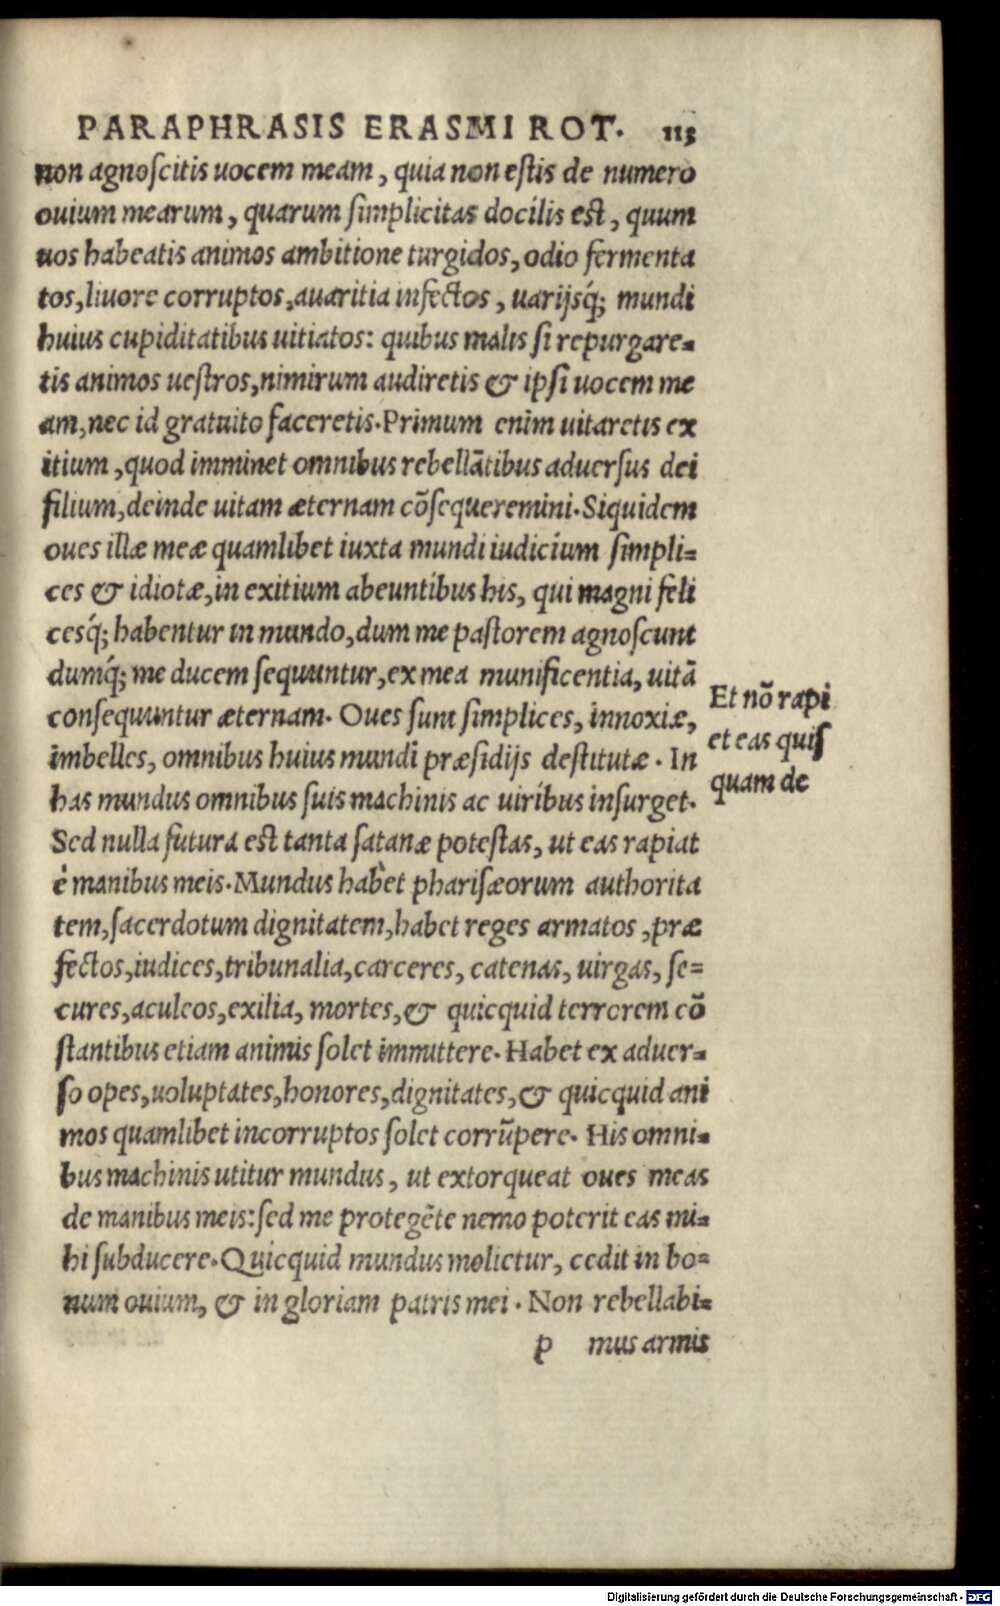 PARAPHRASIS ERASMI ROT. 113
non agnoſcitis uocem meam, quia non eſtis de numero
ouium mearum, quarum ſimplicitas docilis eſt, quum
uos habeatis animos ambitione turgidos, odio fermenta
tos, liuore corruptos, auaritia infectos, uarijsq́; mundi
huius cupiditatibus uitiatos: quibus malis ſi repurgare-
tis animos ueſtros, nimirum audiretis & ipſi uocem me
am, nec id gratuito faceretis. Primum enim uitaretis ex
itium, quod imminet omnibus rebellãtibus aduerſus dei
filium, deinde uitam æternam cõſequeremini. Siquidem
oues illæ meæ quamlibet iuxta mundi iudicium ſimpli=
ces & idiotæ, in exitium abeuntibus his, qui magni feli
cesq́; habentur in mundo, dum me paſtorem agnoſcunt
dumq́; me ducem ſequuntur, ex mea munificentia, uitã
conſequuntur æternam. Oues ſunt ſimplices, innoxiæ,
imbelles, omnibus huius mundi præſidijs deſtitutæ. In
has mundus omnibus ſuis machinis ac uiribus inſurget.
Sed nulla futura eſt tanta ſatanæ poteſtas, ut eas rapiat
è manibus meis. Mundus habet phariſæorum authorita
tem, ſacerdotum dignitatem, habet reges armatos, præ
fectos, iudices, tribunalia, carceres, catenas, uirgas, ſe=
cures, aculeos, exilia, mortes, & quicquid terrorem cõ
ſtantibus etiam animis ſolet immittere. Habet ex aduer=
ſo opes, uoluptates, honores, dignitates, & quicquid ani
mos quamlibet incorruptos ſolet corrũpere. His omni=
bus machinis utitur mundus, ut extorqueat oues meas
de manibus meis: ſed me protegẽte nemo poterit eas mi=
hi ſubducere. Quicquid mundus molietur, cedit in bo=
num ouium, & in gloriam patris mei. Non rebellabi=
p mus armis
Et nõ rapi
et eas quiſ
quam de
Digitalisierung gefördert durch die Deutsche Forschungsgemeinschaft - DFG